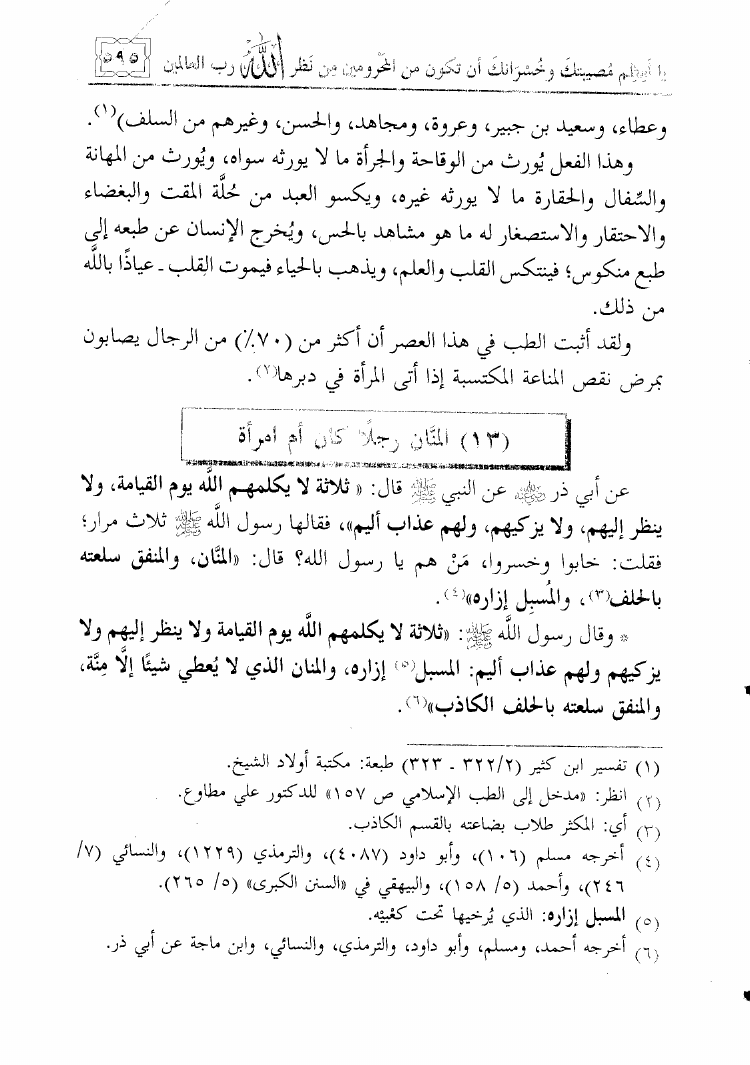 يا أعظم مُصيبتكَ وخُسْرَانكَ أن تكون من المَحْرومين مِن نَظر اللَّه رب العالمين ٥٩٥
وعطاء، وسعيد بن جبير، وعروة، ومجاهد، والحسن، وغيرهم من السلف)(١).
وهذا الفعل يُورث من الوقاحة والجرأة ما لا يورثه سواه، ويُورث من المهانة
والسِّفال والحقارة ما لا يورثه غيره، ويكسو العبد من حُلَّة المقت والبغضاء
والاحتقار والاستصغار له ما هو مشاهد بالحس، ويُخرج الإنسان عن طبعه إلى
طبع منكوس؛ فينتكس القلب والعلم، ويذهب بالحياء فيموت القلب ـ عياذًا باللَّه
من ذلك.
ولقد أثبت الطب في هذا العصر أن أكثر من (٧٠٪) من الرجال يصابون
بمرض نقص المناعة المكتسبة إذا أتى المرأة في دبرها(٢).
(١٣) المنَّان رجلًا كان أم امرأة
عن أبي ذر رضي الله عنه عن النبي ﷺ قال: « ثلاثة لا يكلمهم اللَّه يوم القيامة، ولا
ينظر إليهم، ولا يزكيهم، ولهم عذاب أليم»، فقالها رسول اللَّه ﷺ ثلاث مرار؛
فقلت: خابوا وخسروا، مَنْ هم يا رسول الله؟ قال: «المنَّان، والمنفق سلعته
بالحلف(٣)، والمُسبِل إزاره»(٤).
* وقال رسول اللَّه ﷺ: «ثلاثة لا يكلمهم اللَّه يوم القيامة ولا ينظر إليهم ولا
يزكيهم ولهم عذاب أليم: المسبل(٥) إزاره، والمنان الذي لا يُعطي شيئًا إلَّا مِنَّة،
والمنفق سلعته بالحلف الكاذب»(٦).
(١) تفسير ابن كثير (٣٢٢/٢ ـ ٣٢٣) طبعة: مكتبة أولاد الشيخ.
(٢) انظر: «مدخل إلى الطب الإسلامي ص ١٥٧» للدكتور علي مطاوع.
(٣) أي: المكثر طلاب بضاعته بالقسم الكاذب.
(٤) أخرجه مسلم (١٠٦)، وأبو داود (٤٠٨٧)، والترمذي (١٢٢٩)، والنسائي (٧/
٢٤٦)، وأحمد (٥/ ١٥٨)، والبيهقي في «السنن الكبرى» (٥/ ٢٦٥).
(٥) المسبل إزاره: الذي يُرخيها تحت كعْبيْه.
(٦) أخرجه أحمد، ومسلم، وأبو داود، والترمذي، والنسائي، وابن ماجة عن أبي ذر.